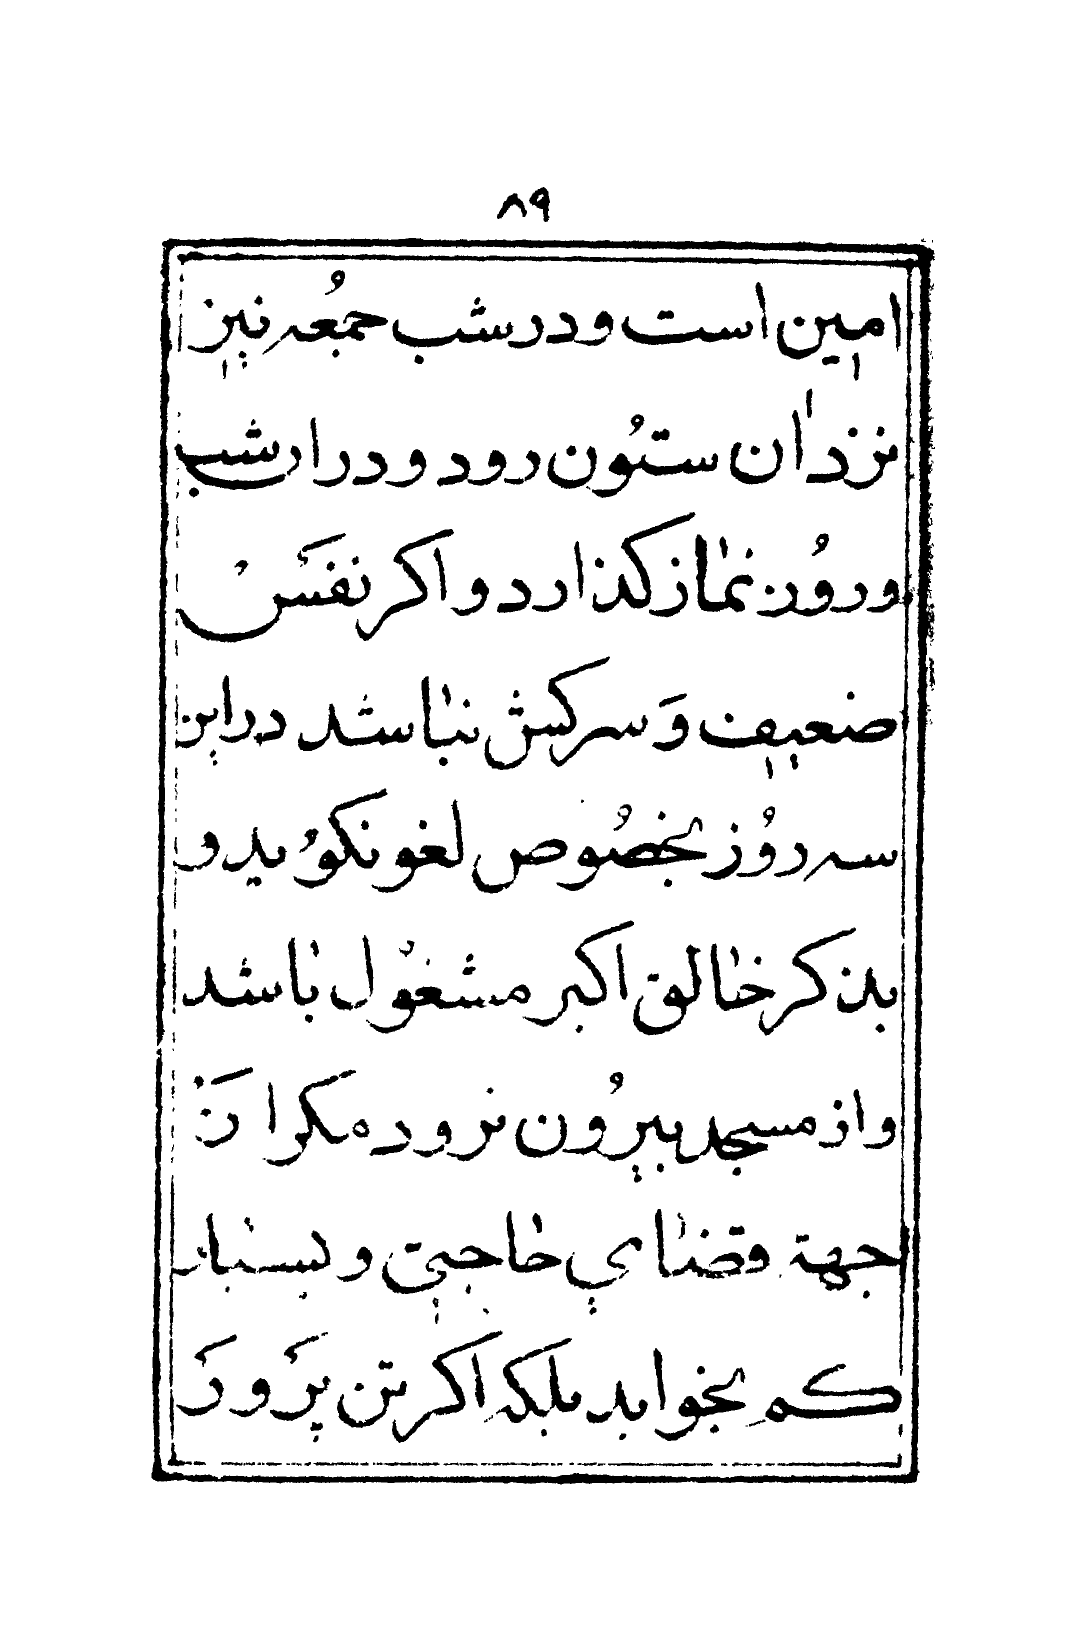 ۸۹
امین است و در شب جمُعه نیز
نزد ان ستُون رود و در ان شب
و روُز نماز کذارد و اکر نفَس
ضعیف وَ سرکش نباشد در این
سه روُز بخصُوص لغو نکوُید و
بذکر خالق اکبر مشغوُل باشد
و از مسجد بیرُون نرود مکر ازَ
جهة قضای حاجتی و بسیار
کم بخوابد بلکه اکر تن پَرورَ